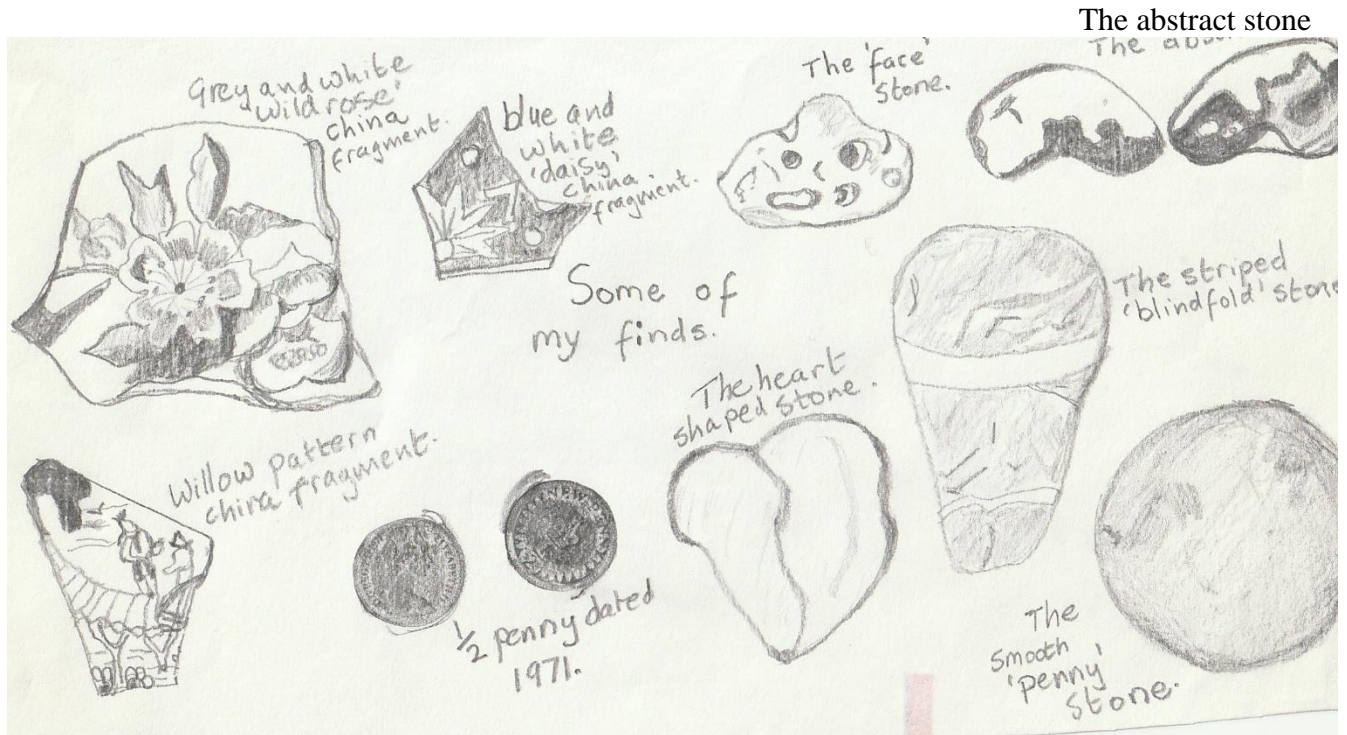 The abstract stone
Grey and white
'wild rose'
china
fragment.
blue and
white
'daisy'
china.
fragment.
The 'face'
Stone.
The
Some of
my finds.
The striped
'blindfold' stone
The heart
shaped stone.
Willow pattern
china fragment.
NEW
½ penny dated
1971.
The
Smooth
'penny'
Stone.